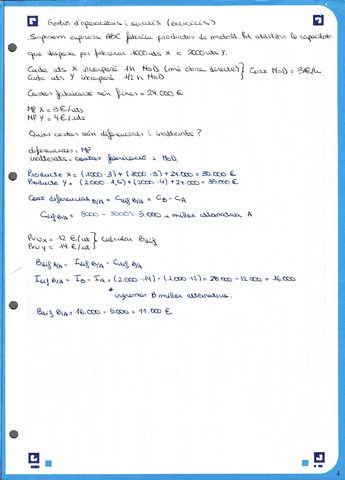 Gestió d'operacions i serveis (exercicis)
Suposem empresa ABC fabrica productes de metall. Pot utilitzar la capacitat
que disposa per fabricar 1000 uts X o 2000 uts Y.
Cada uts X incorpora 1h MOD (mà obra directe) } Cost MOD = 3€/h
Cada uts Y incorpora 1/2 h MOD
Costos fabricació són fixos = 24.000 €
MP X = 3 €/uts
MP Y = 4 €/uts
Quins costos són diferencials i irrellevants?
diferencials = MP
irrellevants = costos fabricació i MOD
Producte X = (1000·3) + (1000·3) + 24.000 = 30.000 €
Producte Y = (2.000·1,5) + (2000·4) + 24.000 = 35.000 €
Cost diferencial B/A = C dif B/A = CB - CA
C dif B/A = 8000 - 3000 = 5.000 → millor alternativa A
Pvu x = 12 €/ut } calcular B dif
Pvu y = 14 €/ut
B dif B/A = I dif B/A - C dif B/A
I dif B/A = IB - IA = (2.000·14) - (1.000·12) = 28.000 - 12.000 = 16.000
ingressos B millor alternativa.
B dif B/A = 16.000 - 5.000 = 11.000 €
1